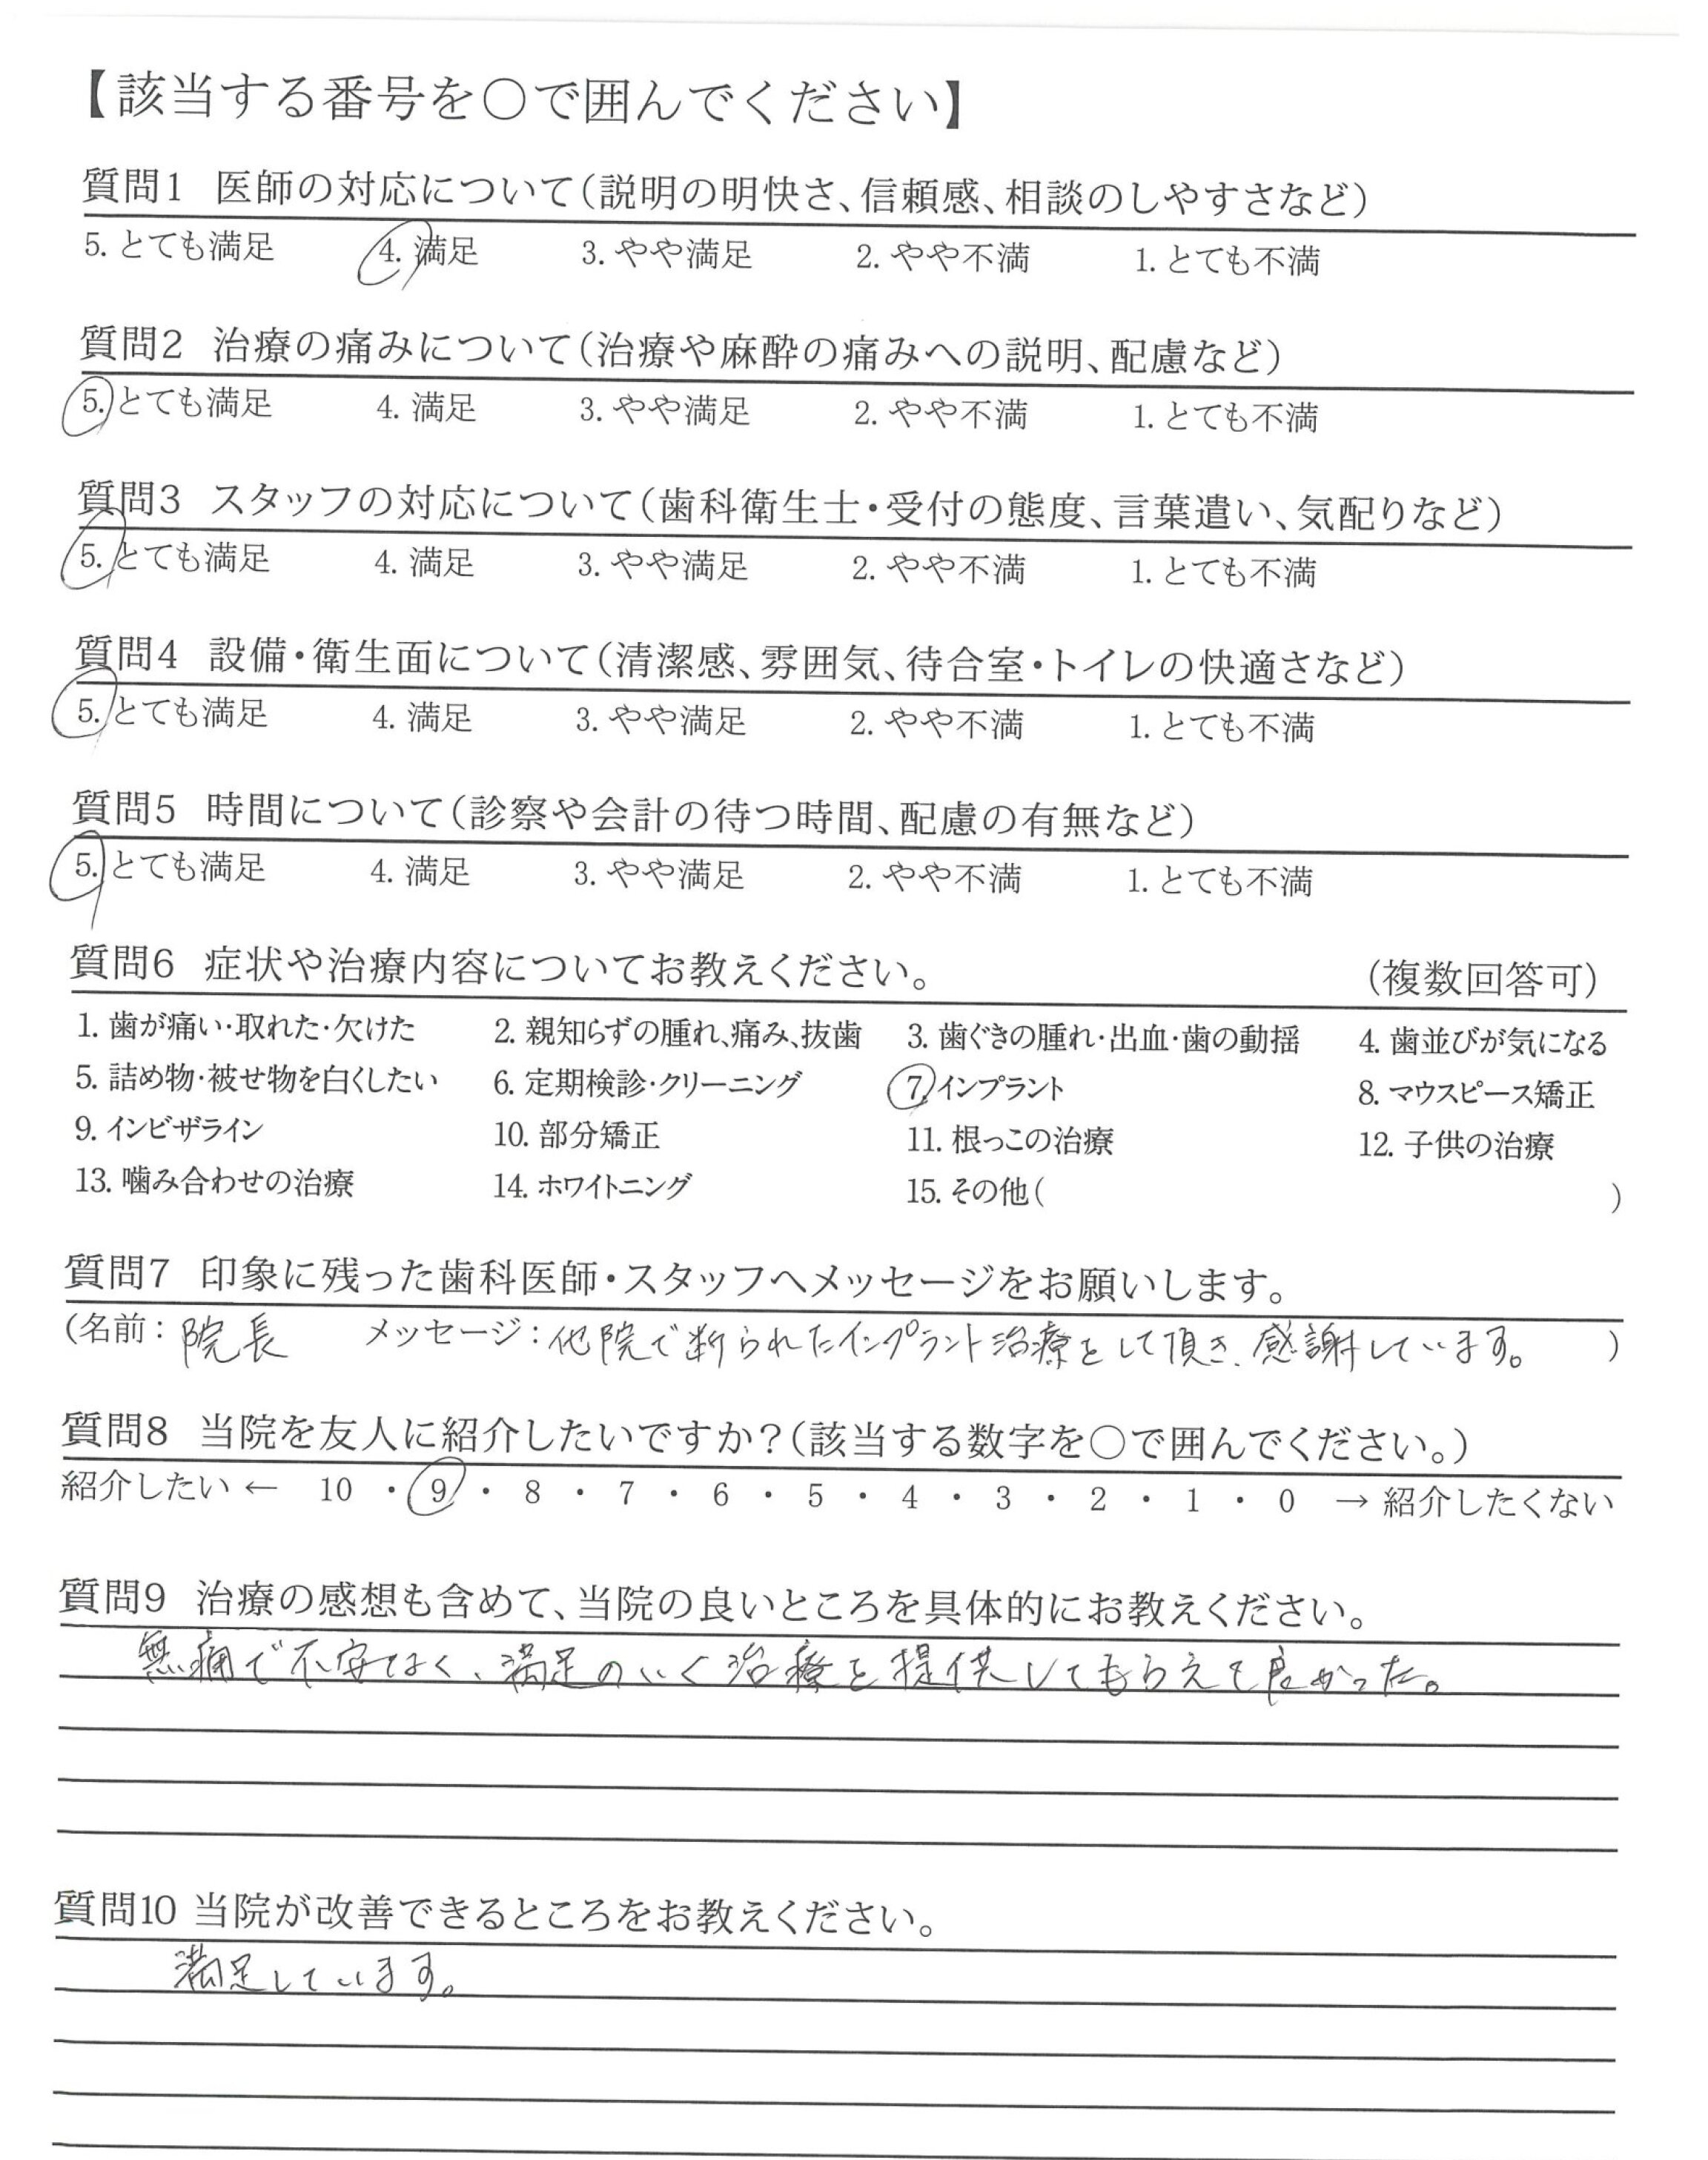 【該当する番号を○で囲んでください】
質問1 医師の対応について(説明の明快さ、信頼感、相談のしやすさなど)
5. とても満足 4. 満足 3. やや満足 2. やや不満 1. とても不満
質問2 治療の痛みについて(治療や麻酔の痛みへの説明、配慮など)
5. とても満足 4. 満足 3. やや満足 2. やや不満 1. とても不満
質問3 スタッフの対応について(歯科衛生士・受付の態度、言葉遣い、気配りなど)
5. とても満足 4. 満足 3. やや満足 2. やや不満 1. とても不満
質問4 設備・衛生面について(清潔感、雰囲気、待合室・トイレの快適さなど)
5. とても満足 4. 満足 3. やや満足 2. やや不満 1. とても不満
質問5 時間について(診察や会計の待つ時間、配慮の有無など)
5. とても満足 4. 満足 3. やや満足 2. やや不満 1. とても不満
質問6 症状や治療内容についてお教えください。 (複数回答可)
1. 歯が痛い・取れた・欠けた 2. 親知らずの腫れ、痛み、抜歯 3. 歯ぐきの腫れ・出血・歯の動揺 4. 歯並びが気になる
5. 詰め物・被せ物を白くしたい 6. 定期検診・クリーニング 7. インプラント 8. マウスピース矯正
9. インビザライン 10. 部分矯正 11. 根っこの治療 12. 子供の治療
13. 噛み合わせの治療 14. ホワイトニング 15. その他( )
質問7 印象に残った歯科医師・スタッフへメッセージをお願いします。
(名前:院長 メッセージ:他院で断られたインプラント治療をして頂き、感謝しています。 )
質問8 当院を友人に紹介したいですか?(該当する数字を○で囲んでください。)
紹介したい ← 10 ・ 9 ・ 8 ・ 7 ・ 6 ・ 5 ・ 4 ・ 3 ・ 2 ・ 1 ・ 0 → 紹介したくない
質問9 治療の感想も含めて、当院の良いところを具体的にお教えください。
無痛で不安なく、満足のいく治療を提供してもらえて良かった。
質問10 当院が改善できるところをお教えください。
満足しています。